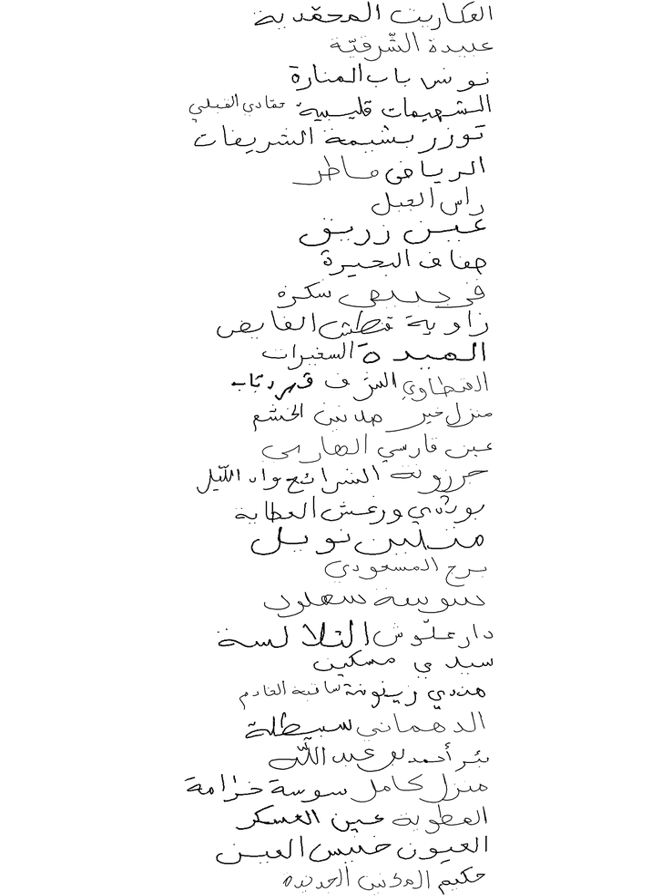 العكاريت المحمّدية
عبيدة الشّرقيّة
تونس باب المنارة
الشهيمات قليبية حفادي القبلي
توزر بشيمة الشريفات
الرياض ماطر
راس الجبل
عين زريق
ضفاف البحيرة
سكرة
زاوية قطش الفايض
الميدة السغيرات
القنطاوي الشرف قهرد ثاب
منزل خير الخشم
عين فارسي الهاربي
حرزونة الشرائح واد اللّيل
بوشدي ورغش العطاية
منلين نويل
برج المسعودي
سوسة سهلول
دار علّوش التلالسة
سيدي مسكين
هندي زيتونة ساقية الخادم
الدهماني سبيطلة
بئر أحمد بن عبد اللّه
منزل كامل سوسة خزامة
العطوية عين العسكر
العيون خنيس العين
حكيم المكنين الجديدة